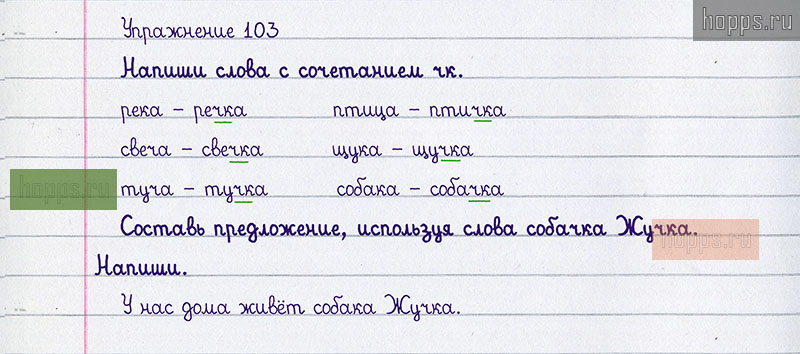 hopps.ru
Упражнение 103
Напиши слова с сочетанием чк.
река – речка птица – птичка
свеча – свечка щука – щучка
hopps.ru
туча – тучка собака – собачка
Составь предложение, используя слова собачка Жучка.
hopps.ru
Напиши.
У нас дома живёт собака Жучка.